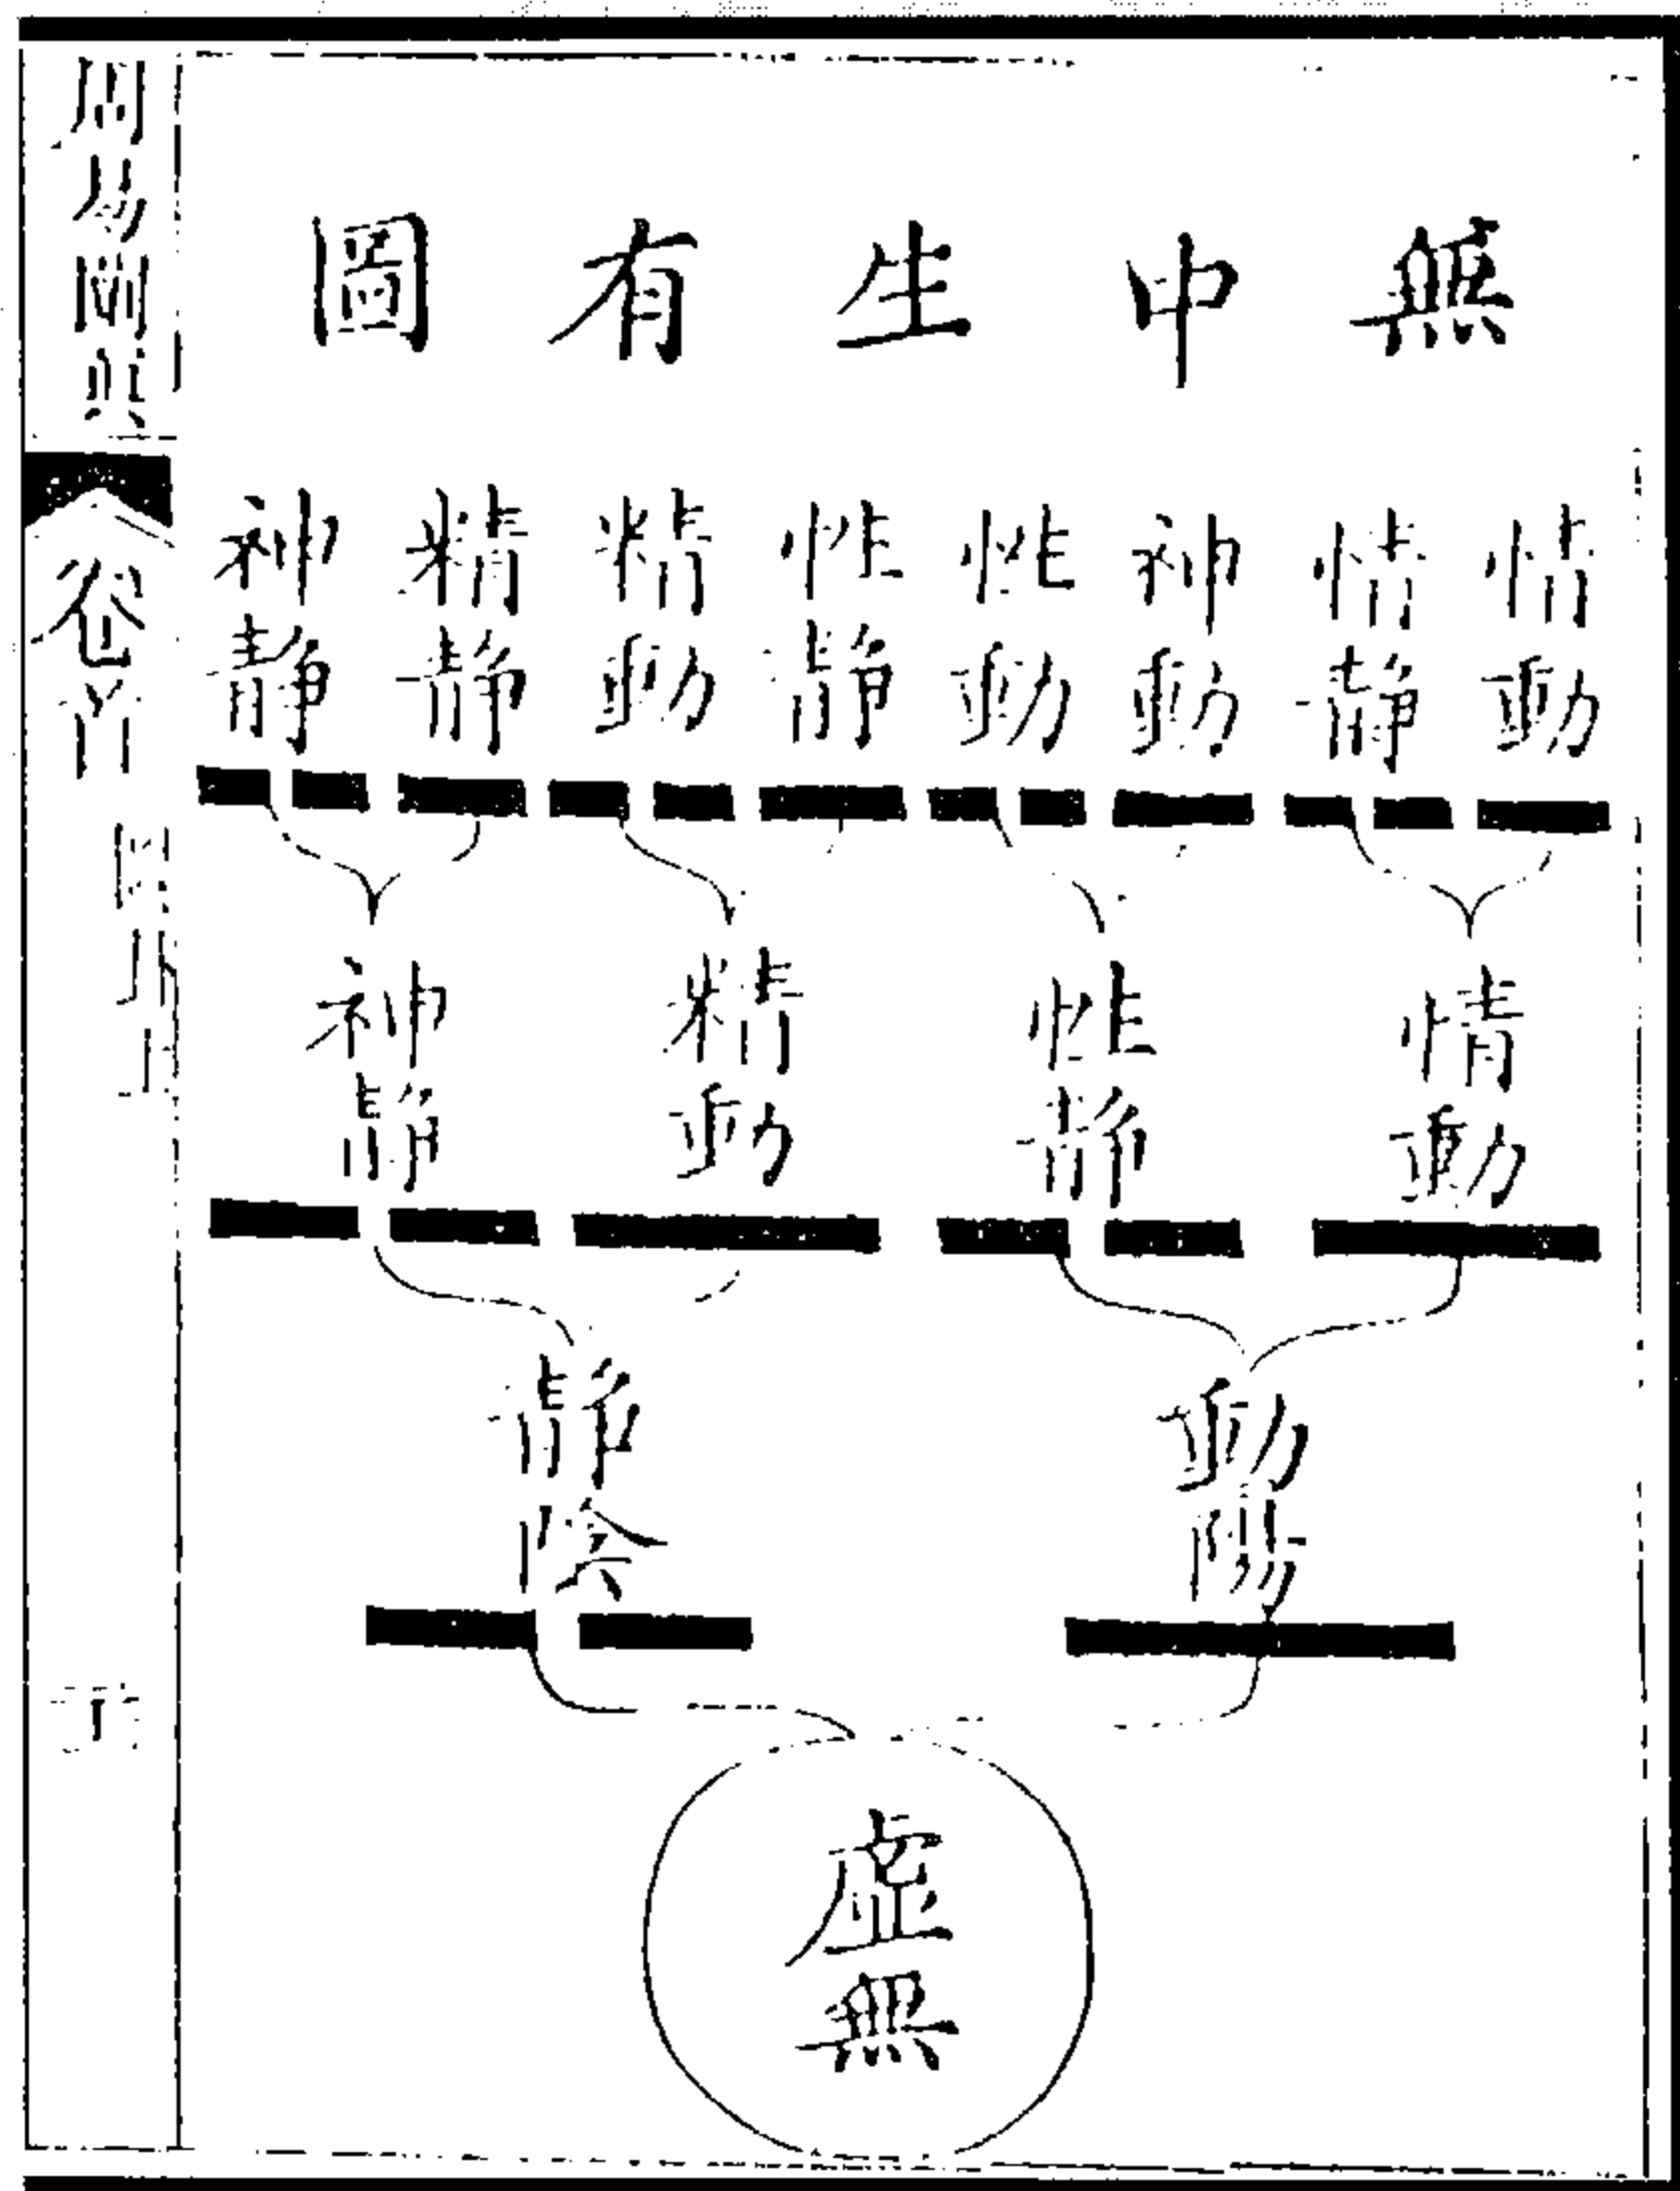 無中生有圖
情動 情靜 神動 性動 性靜 精動 精靜 神靜
情動 性靜 精動 神靜
動陽 靜陰
虛無
周易闡真
卷首